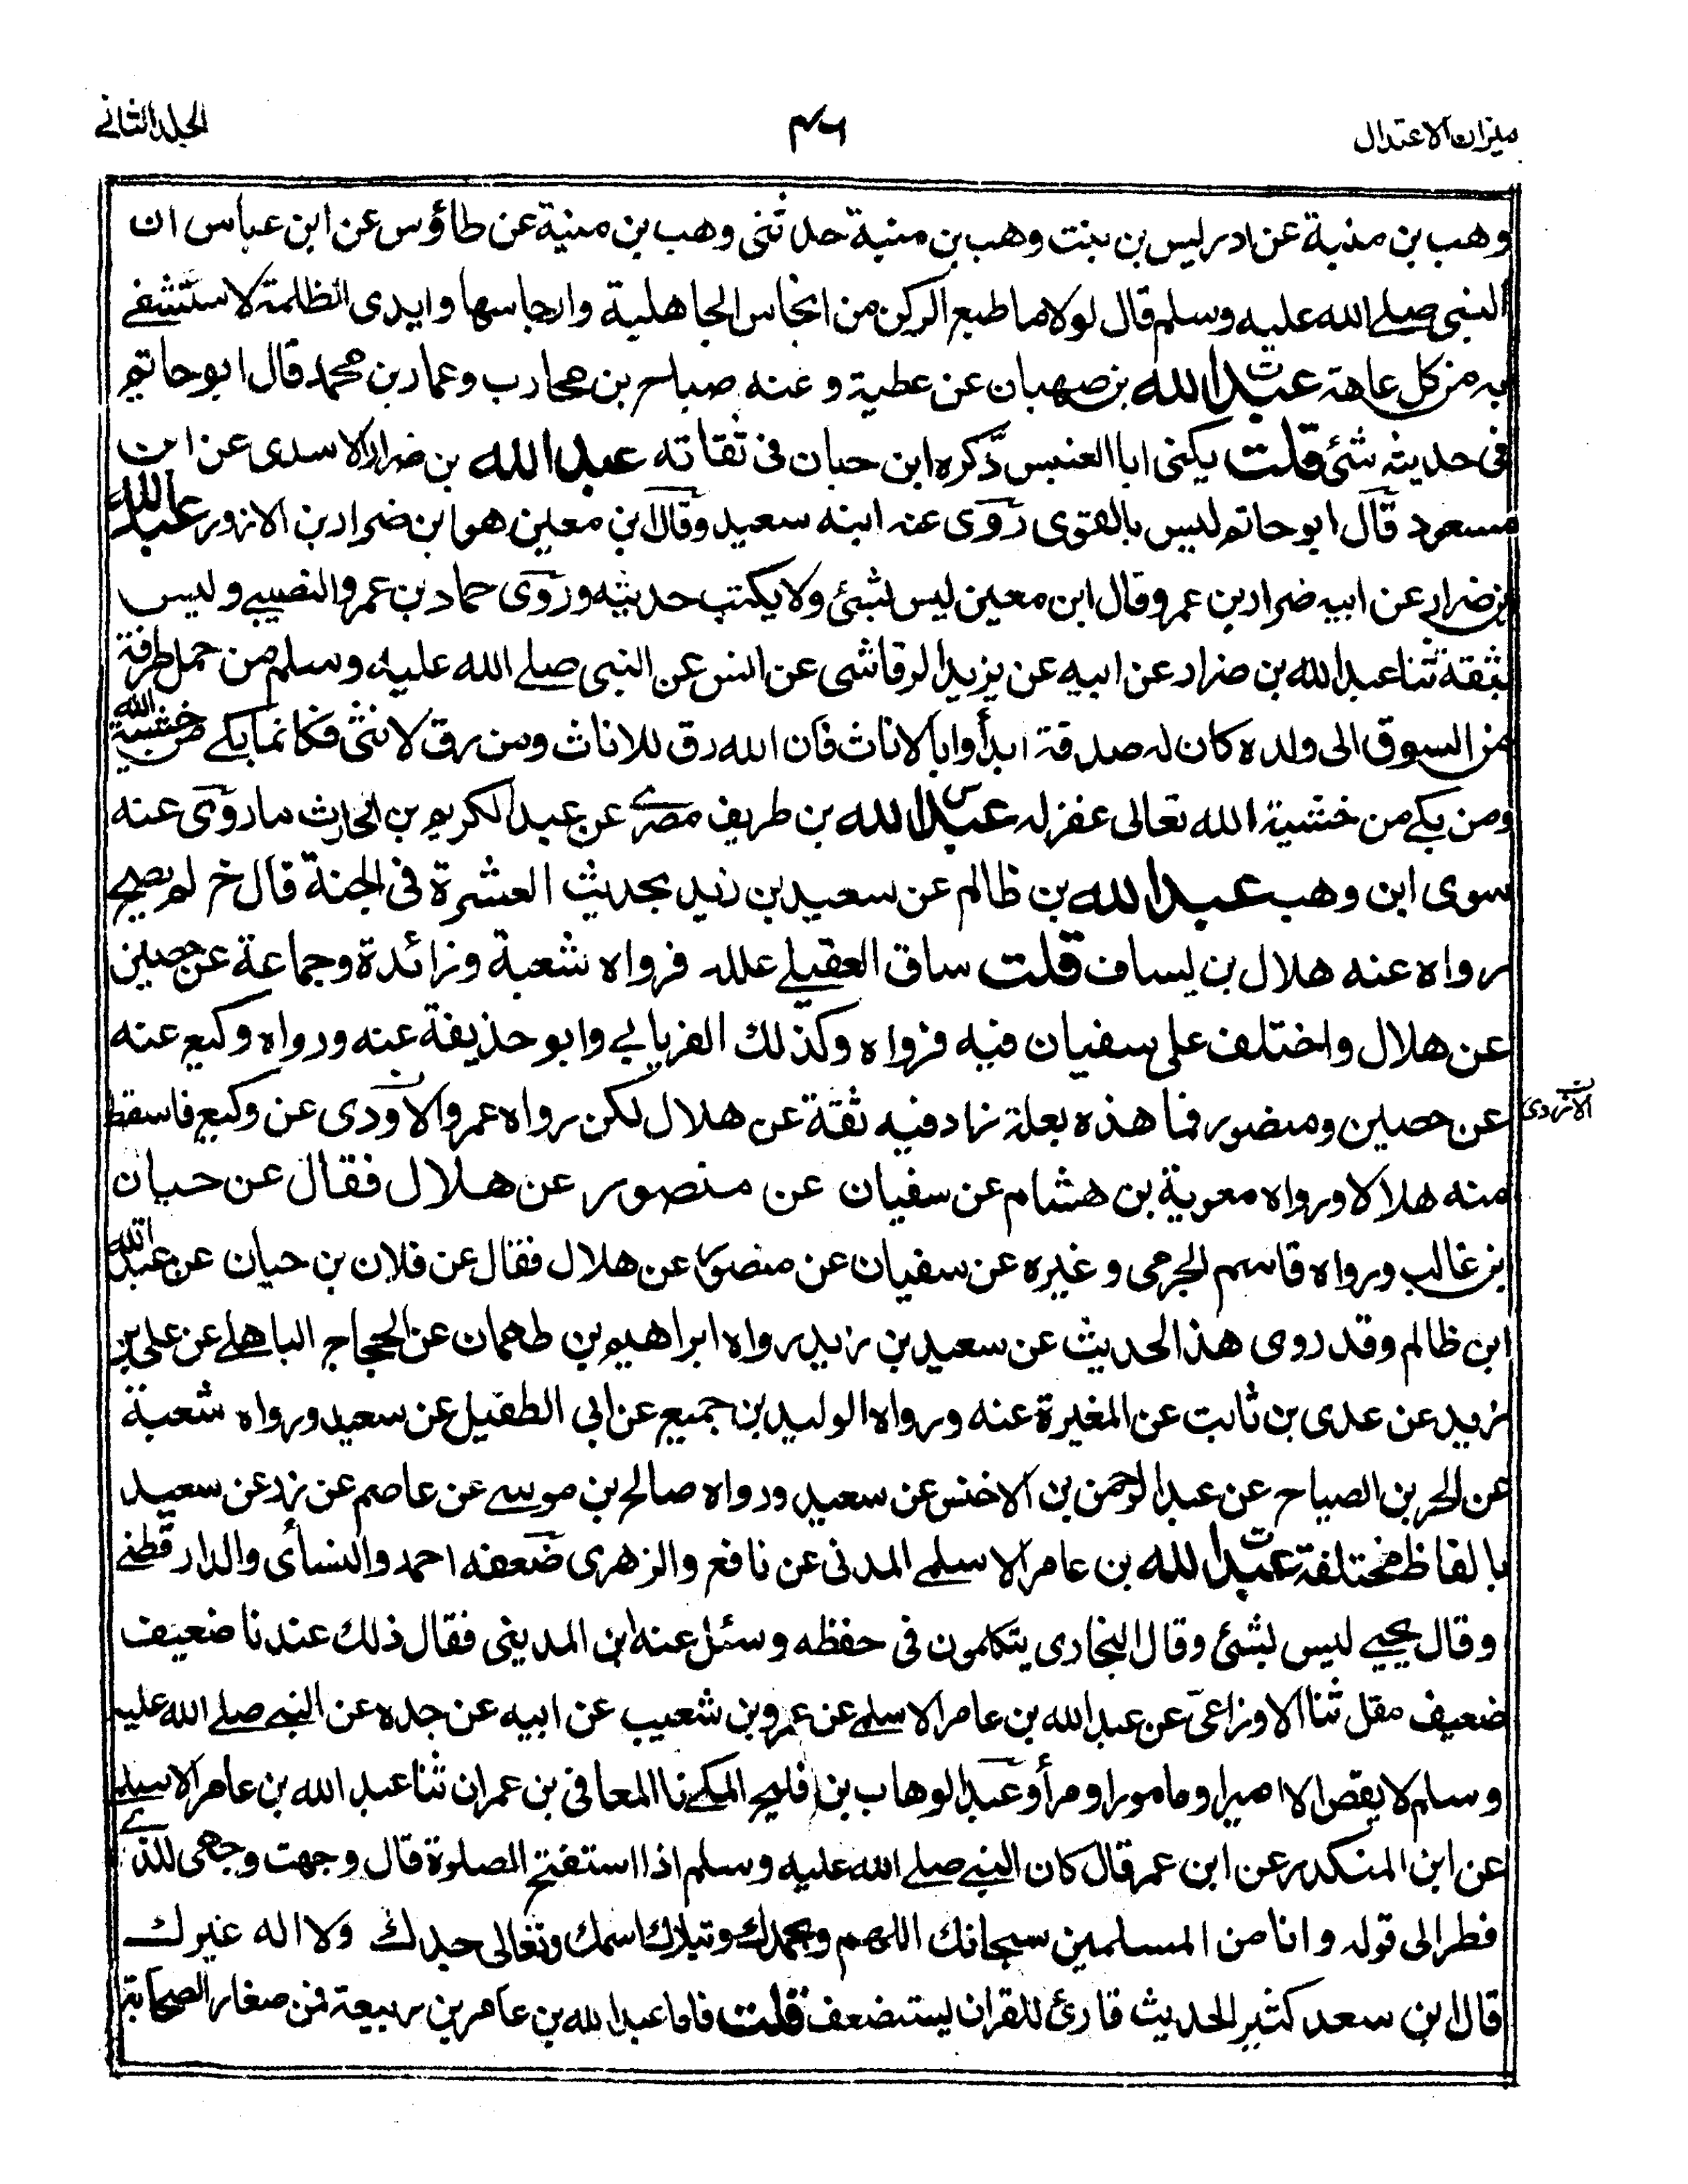 ميزان الاعتدال
٤٦
الجلد الثاني
وهب بن منبة عن ادريس بن بنت وهب بن منبة حدثنى وهب بن منبة عن طاؤس عن ابن عباس ان
النبى صلے الله عليه وسلم قال لولا ما طبع الركن من انجاس الجاهلية وارجاسها وايدى الظلمة لاستشفے
به من كل عاهة عبد الله بن صهبان عن عطية وعنه صباح بن محارب وعمار بن محمد قال ابو حاتم
فى حديثه شئ قلت يكنى ابا العنبس ذكره ابن حبان فى ثقاته عبد الله بن ضرار الاسدى عن ابن
مسعود قال ابو حاتم ليس بالقوى روى عنه ابنه سعيد وقال ابن معين هو ابن ضرار بن الازور عبد الله
بن ضرار عن ابيه ضرار بن عمرو قال ابن معين ليس بشئ ولا يكتب حديثه وروى حماد بن عمرو النصيبے وليس
بثقة ثنا عبد الله بن ضرار عن ابيه عن يزيد الرقاشى عن انس عن النبى صلے الله عليه وسلم من حمل طرفة
من السوق الى ولده كان له صدقة ابدأوا بالاناث فان الله رق للاناث ومن رق لانثى فكانما بكے من خشية الله
ومن بكے من خشية الله تعالى غفر له عبد الله بن طريف مصرے عن عبد الكريم بن الحارث ما روى عنه
سوى ابن وهب عبد الله بن ظالم عن سعيد بن زيد بحديث العشرة فى الجنة قال خ لم يصح
رواه عنه هلال بن يساف قلت ساق العقيلے علله فرواه شعبة وزائدة وجماعة عن حصين
عن هلال واختلف على سفيان فيه فرواه وكذلك الفريابے وابو حذيفة عنه ورواه وكيع عنه
عن حصين ومنصور فما هذه بعلة زاد فيه ثقة عن هلال لكن رواه عمرو الاودى عن وكيع فاسقط
الازدى
منه هلالا ورواه معوية بن هشام عن سفيان عن منصور عن هلال فقال عن حيان
ابن غالب ورواه قاسم الجرمى وغيره عن سفيان عن منصور عن هلال فقال عن فلان بن حيان عن عبد الله
ابن ظالم وقد روى هذا الحديث عن سعيد بن زيد رواه ابراهيم بن طهمان عن الحجاج الباهلے عن على بن
زيد عن عدى بن ثابت عن المغيرة عنه ورواه الوليد بن جميع عن ابى الطفيل عن سعيد ورواه شعبة
عن الحر بن الصياح عن عبد الرحمن بن الاخنس عن سعيد ورواه صالح بن موسے عن عاصم عن زر عن سعيد
بالفاظ مختلفة عبد الله بن عامر الاسلمے المدنى عن نافع والزهرى ضعفه احمد والنسأى والدارقطنے
وقال يحيے ليس بشئ وقال البخارى يتكلمون فى حفظه وسئل عنه ابن المدينى فقال ذلك عندنا ضعيف
ضعيف مقل ثنا الاوزاعى عن عبد الله بن عامر الاسلمے عن عمرو بن شعيب عن ابيه عن جده عن النبے صلے الله عليه
وسلم لا يقص الا امير او مامور او مرأو عبد الوهاب بن فليح المكے نا المعافى بن عمران ثنا عبد الله بن عامر الاسلمے
عن ابن المنكدر عن ابن عمر قال كان النبے صلے الله عليه وسلم اذا استفتح الصلوة قال وجهت وجهى للذے
فطر الى قوله وانا من المسلمين سبحانك اللهم وبحمدك وتبارك اسمك وتعالى جدك ولا اله غيرك
قال ابن سعد كثير الحديث قارئ للقران يستضعف قلت فاما عبد الله بن عامر بن ربيعة فمن صغار الصحابة